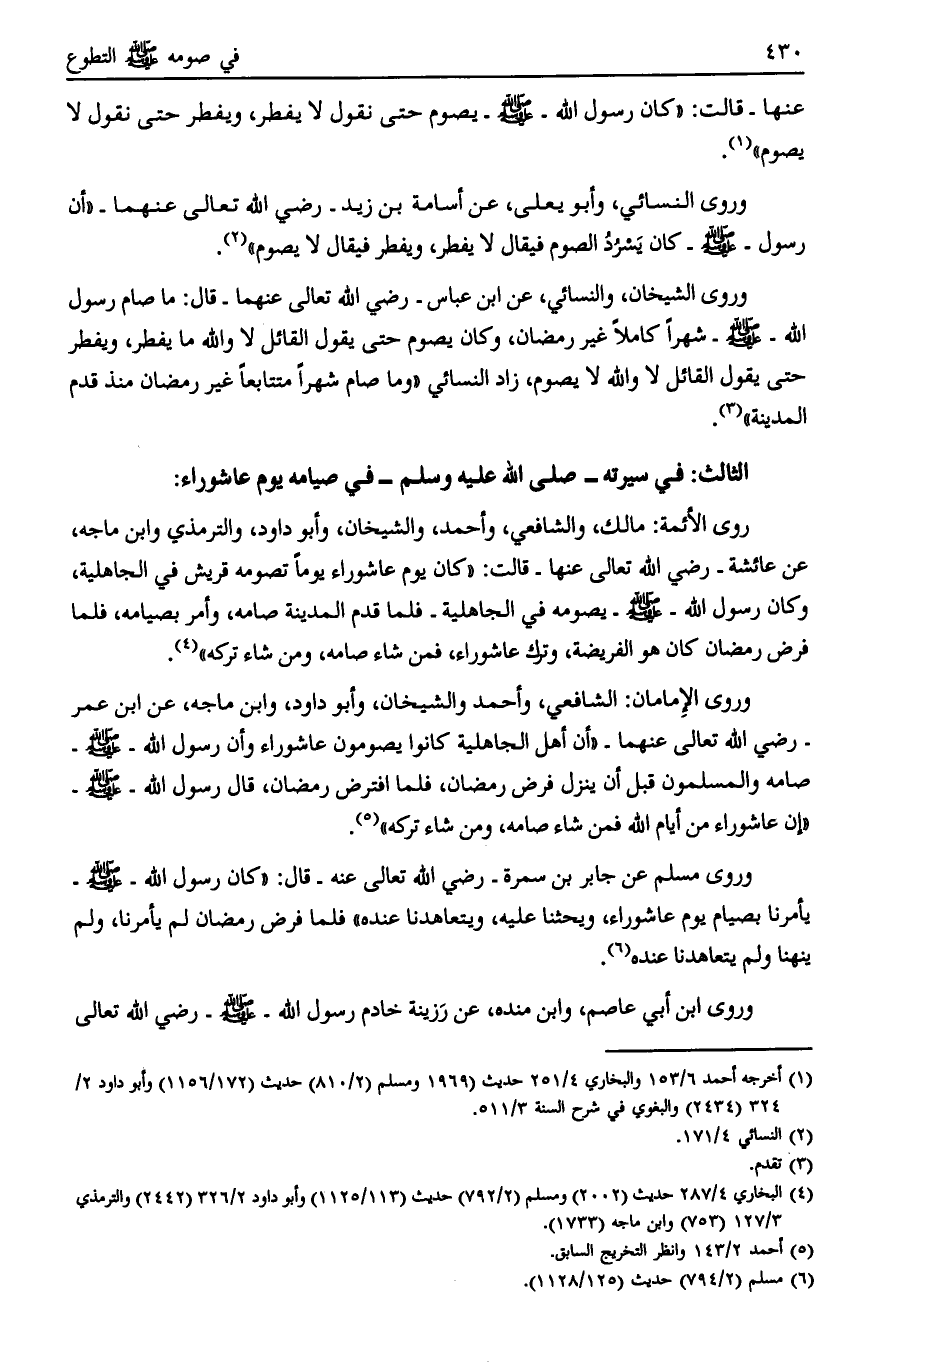 ٤٣٠ في صومه ﷺ التطوع
عنها ـ قالت: «كان رسول الله ـ ﷺ ـ يصوم حتى نقول لا يفطر، ويفطر حتى نقول لا
يصوم»(١).
وروى النسائي، وأبو يعلى، عن أسامة بن زيد ـ رضي الله تعالى عنهما ـ «أن
رسول ـ ﷺ ـ كان يَسْرُدُ الصوم فيقال لا يفطر، ويفطر فيقال لا يصوم»(٢).
وروى الشيخان، والنسائي، عن ابن عباس ـ رضي الله تعالى عنهما ـ قال: ما صام رسول
الله ـ ﷺ ـ شهراً كاملاً غير رمضان، وكان يصوم حتى يقول القائل لا والله ما يفطر، ويفطر
حتى يقول القائل لا والله لا يصوم، زاد النسائي «وما صام شهراً متتابعاً غير رمضان منذ قدم
المدينة»(٣).
الثالث: في سيرته ـ صلى الله عليه وسلم ـ في صيامه يوم عاشوراء:
روى الأئمة: مالك، والشافعي، وأحمد، والشيخان، وأبو داود، والترمذي وابن ماجه،
عن عائشة ـ رضي الله تعالى عنها ـ قالت: «كان يوم عاشوراء يوماً تصومه قريش في الجاهلية،
وكان رسول الله ـ ﷺ ـ يصومه في الجاهلية ـ فلما قدم المدينة صامه، وأمر بصيامه، فلما
فرض رمضان كان هو الفريضة، وترك عاشوراء، فمن شاء صامه، ومن شاء تركه»(٤).
وروى الإمامان: الشافعي، وأحمد والشيخان، وأبو داود، وابن ماجه، عن ابن عمر
ـ رضي الله تعالى عنهما ـ «أن أهل الجاهلية كانوا يصومون عاشوراء وأن رسول الله ـ ﷺ ـ
صامه والمسلمون قبل أن ينزل فرض رمضان، فلما افترض رمضان، قال رسول الله ـ ﷺ ـ
«إن عاشوراء من أيام الله فمن شاء صامه، ومن شاء تركه»(٥).
وروى مسلم عن جابر بن سمرة ـ رضي الله تعالى عنه ـ قال: «كان رسول الله ـ ﷺ ـ
يأمرنا بصيام يوم عاشوراء، ويحثنا عليه، ويتعاهدنا عنده» فلما فرض رمضان لم يأمرنا، ولم
ينهنا ولم يتعاهدنا عنده(٦).
وروى ابن أبي عاصم، وابن منده، عن رَزينة خادم رسول الله ـ ﷺ ـ رضي الله تعالى
(١) أخرجه أحمد ١٥٣/٦ والبخاري ٢٥١/٤ حديث (١٩٦٩ ومسلم (٨١٠/٢) حديث (١١٥٦/١٧٢) وأبو داود ٢/
٣٢٤ (٢٤٣٤) والبغوي في شرح السنة ٥١١/٣.
(٢) النسائي ١٧١/٤.
(٣) تقدم.
(٤) البخاري ٢٨٧/٤ حديث (٢٠٠٢) ومسلم (٧٩٢/٢) حديث (١١٢٥/١١٣) وأبو داود ٣٢٦/٢ (٢٤٤٢) والترمذي
١٢٧/٣ (٧٥٣) وابن ماجه (١٧٣٣).
(٥) أحمد ١٤٣/٢ وانظر التخريج السابق.
(٦) مسلم (٧٩٤/٢) حديث (١١٢٨/١٢٥).